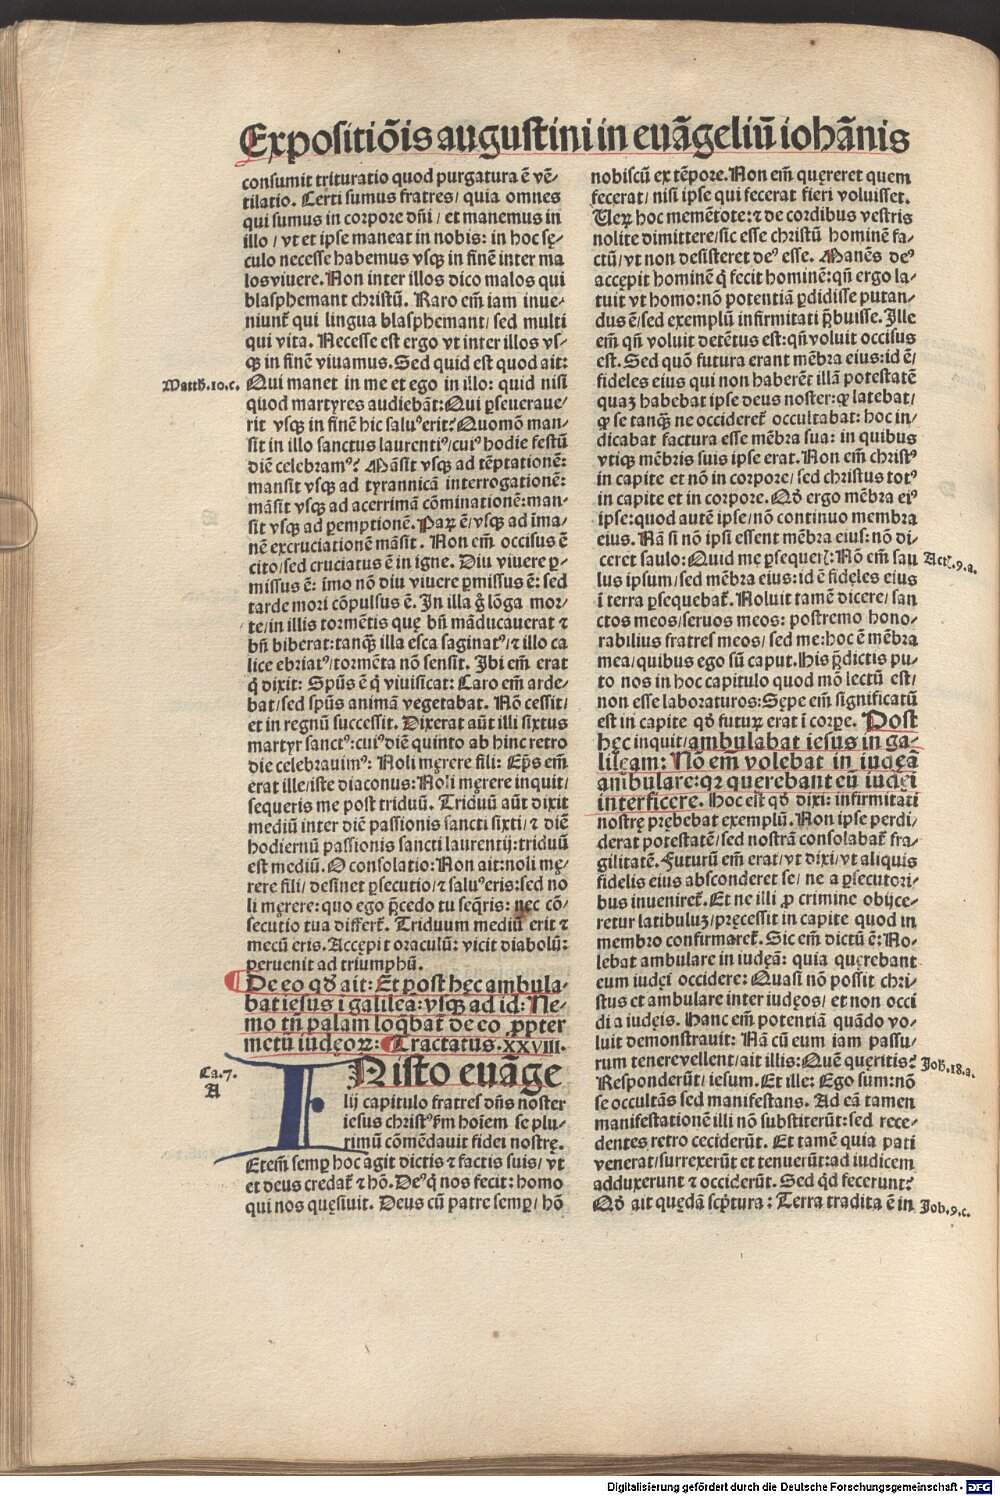 Expositiõis augustini in euãgeliũ iohãnis
consumit trituratio quod purgatura ē vē⸗
tilatio. Certi sumus fratres/ quia omnes
qui sumus in corpore dñi/ et manemus in
illo/ vt et ipse maneat in nobis: in hoc sę⸗
culo necesse habemus vsqꝫ in finē inter ma
los viuere. Non inter illos dico malos qui
blasphemant christū. Raro em̄ iam inue⸗
niunt᷑ qui lingua blasphemant/ sed multi
qui vita. Necesse est ergo vt inter illos vs⸗
qꝫ in finē viuamus. Sed quid est quod ait:
Matth.10.c.
Qui manet in me et ego in illo: quid nisi
quod martyres audiebāt: Qui ꝑseueraue⸗
rit vsqꝫ in finē hic saluꝰ erit? Quomō man⸗
sit in illo sanctus laurentiꝰ/ cuiꝰ hodie festū
diē celebramꝰ? Māsit vsqꝫ ad tēptationē:
mansit vsqꝫ ad tyrannicā interrogationē:
māsit vsqꝫ ad acerrimā cōminationē: man⸗
sit vsqꝫ ad ꝑemptionē. Parꝝ ē/ vsqꝫ ad īma⸗
nē excruciationē māsit. Non em̄ occisus ē
cito/ sed cruciatus ē in igne. Diu viuere ꝑ⸗
missus ē: imo nō diu viuere ꝑmissus ē: sed
tarde mori cōpulsus ē. In illa g̊ lōga mor⸗
te/ in illis tormētis quę bñ māducauerat ⁊
bñ biberat: tanqꝫ illa esca saginatꝰ/ ⁊ illo ca
lice ebriatꝰ/ tormēta nō sensit. Ibi em̄ erat
q̇ dixit: Spūs ē q̇ viuificat: Caro em̄ arde⸗
bat/ sed spūs animā vegetabat. Nō cessit/
et in regnū successit. Dixerat aūt illi sixtus
martyr sanctꝰ: cuiꝰ diē quinto ab hinc retro
die celebrauimꝰ: Noli męrere fili: Ep̄s em̄
erat ille/ iste diaconus: Noli męrere inquit/
sequeris me post triduū. Triduū aūt dixit
mediū inter diē passionis sancti sixti/ ⁊ diē
hodiernū passionis sancti laurentij: triduū
est mediū. O consolatio: Non ait: noli mę⸗
rere fili/ desinet ꝑsecutio/ ⁊ saluꝰ eris: sed no
li męrere: quo ego p̄cedo tu seq̄ris: nec cō⸗
secutio tua differt᷑. Triduum mediū erit ⁊
mecū eris. Accepit oraculū: vicit diabolū:
peruenit ad triumphū.
De eo qđ ait: Et post hęc ambula⸗
bat iesus ī galileā: vsqꝫ ad id: Ne⸗
mo tñ palam loq̄bat᷑ de eo ꝓpter
metū iudęoꝝ: Tractatus.XXVIII.
Ca.7.
A
IN isto euāge
lij capitulo fratres dñs noster
iesus christꝰ s̄m hoīem se plu⸗
rimū cōmēdauit fidei nostrę.
Etem̄ semꝑ hoc agit dictis ⁊ factis suis/ vt
et deus credat᷑ ⁊ hō. Deꝰ q̇ nos fecit: homo
qui nos quęsiuit. Deus cū patre semꝑ/ hō
nobiscū ex tēpore. Non em̄ quęreret quem
fecerat/ nisi ipse qui fecerat fieri voluisset.
Veꝝ hoc memētote: ⁊ de cordibus vestris
nolite dimittere/ sic esse christū hominē fa⸗
ctū/ vt non desisteret deꝰ esse. Manēs deꝰ
accepit hominē q̇ fecit hominē: qñ ergo la⸗
tuit vt homo: nō potentiā ꝑdidisse putan⸗
dus ē/ sed exemplū infirmitati p̄buisse. Ille
em̄ qñ voluit detētus est: qñ voluit occisus
est. Sed quō futura erant mēbra eius: id ē/
fideles eius qui non haberēt illā potestatē
quaꝫ habebat ipse deus noster: ꝙ latebat/
ꝙ se tanqꝫ ne occideret᷑ occultabat: hoc in⸗
dicabat factura esse mēbra sua: in quibus
vtiqꝫ mēbris suis ipse erat. Non em̄ christꝰ
in capite et nō in corpore/ sed christus totꝰ
in capite et in corpore. Qđ ergo mēbra eiꝰ
ipse: quod autē ipse/ nō continuo membra
eius. Nā si nō ipsi essent mēbra eius: nō di⸗
ceret saulo: Quid me ꝑsequeris? Nō em̄ sau
Act.9.a.
lus ipsum/ sed mēbra eius: id ē fideles eius
ī terra ꝑsequebat᷑. Noluit tamē dicere/ san
ctos meos/ seruos meos: postremo hono⸗
rabilius fratres meos/ sed me: hoc ē mēbra
mea/ quibus ego sū caput. His p̄dictis pu⸗
to nos in hoc capitulo quod mō lectū est/
non esse laboraturos: Sępe em̄ significatū
est in capite qđ futuꝝ erat ī corꝑe. Post
hęc inquit/ ambulabat iesus in ga⸗
lileam: Nō em̄ volebat in iudęā
ambulare: qꝛ quęrebant eū iudęi
interficere. Hoc est qđ dixi: infirmitati
nostrę prębebat exemplū. Non ipse perdi⸗
derat potestatē/ sed nostrā consolabat᷑ fra⸗
gilitatē. Futurū em̄ erat/ vt dixi/ vt aliquis
fidelis eius absconderet se/ ne a ꝑsecutori⸗
bus inueniret᷑. Et ne illi ꝓ crimine obijce⸗
retur latibuluꝫ/ pręcessit in capite quod in
membro confirmaret᷑. Sic em̄ dictū ē: No⸗
lebat ambulare in iudęā: quia quęrebant
eum iudęi occidere: Quasi nō possit chri⸗
stus et ambulare inter iudęos/ et non occi
di a iudęis. Hanc em̄ potentiā quādo vo⸗
luit demonstrauit: Nā cū eum iam passu⸗
rum tenere vellent/ ait illis: Quē quęritis?
Joh.18.a.
Responderūt/ iesum. Et ille: Ego sum: nō
se occultās sed manifestans. Ad eā tamen
manifestationē illi nō substiterūt: sed rece⸗
dentes retro ceciderūt. Et tamē quia pati
venerat/ surrexerūt et tenuerūt: ad iudicem
adduxerunt ⁊ occiderūt. Sed qd fecerunt?
Qđ ait quędā scp̄tura: Terra tradita ē in
Job.9.c.
Digitalisierung gefördert durch die Deutsche Forschungsgemeinschaft - DFG